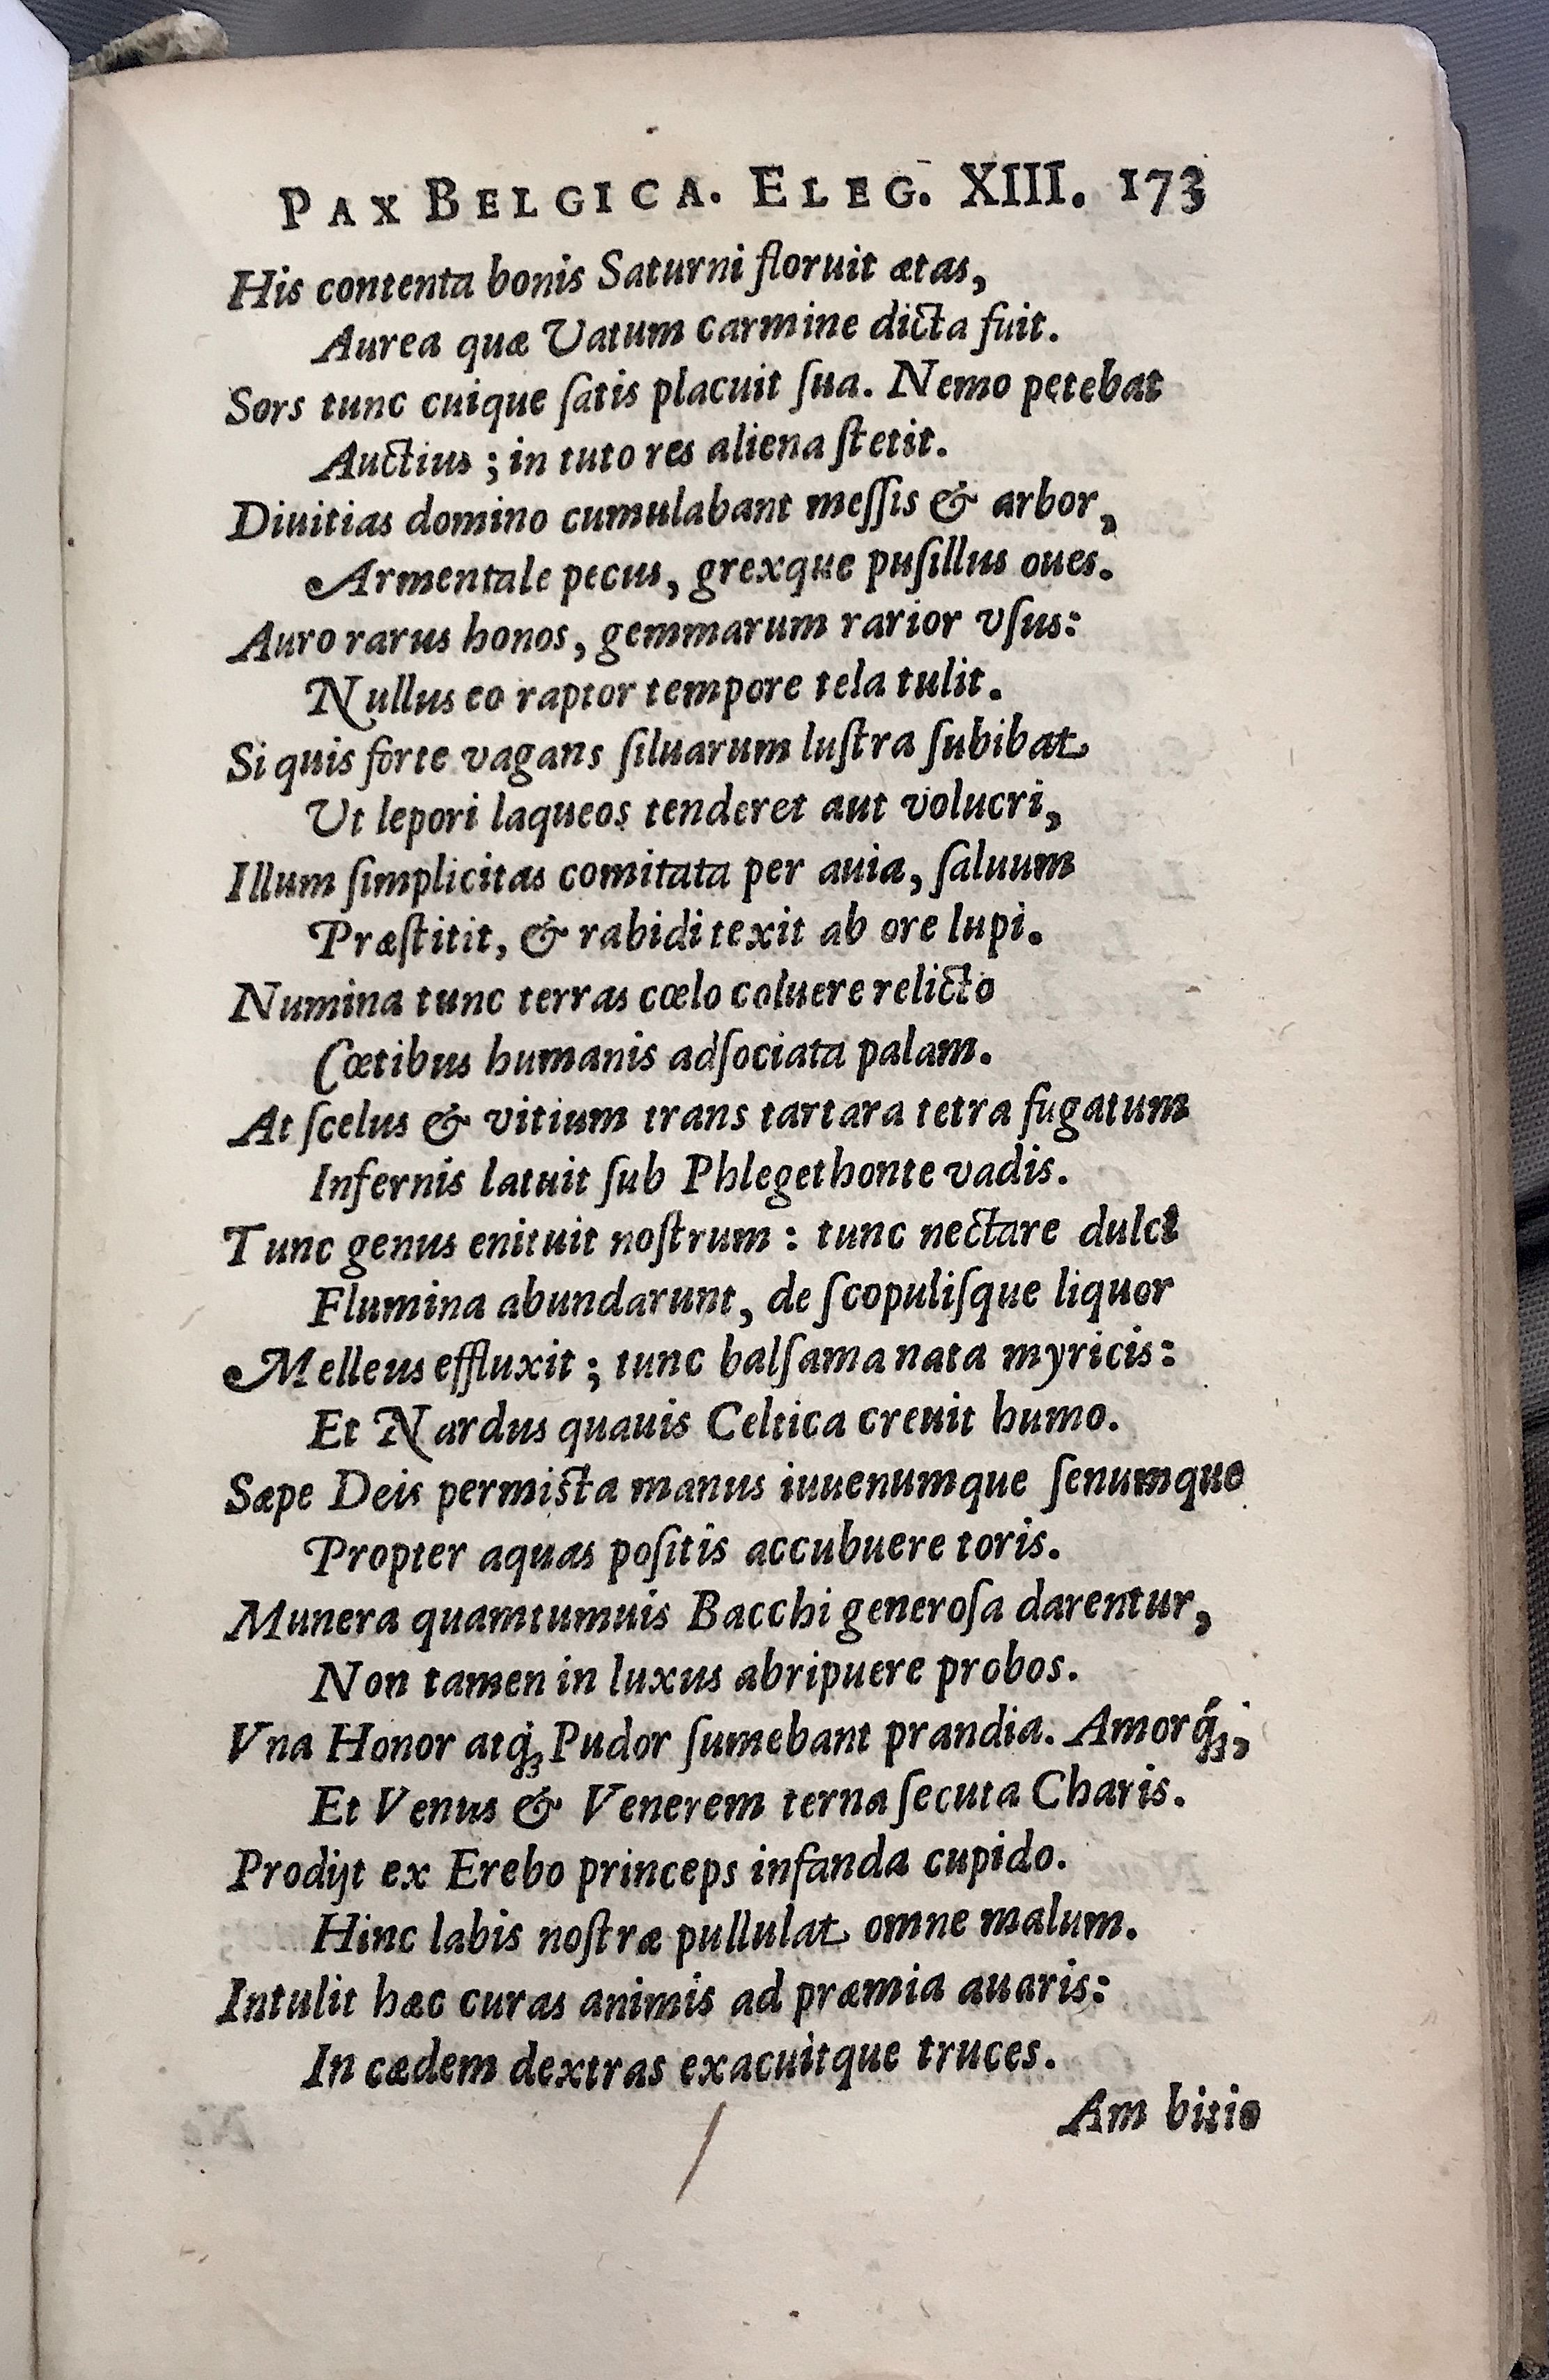 PAX BELGICA. ELEG. XIII. 173
His contenta bonis Saturni floruit ætas,
Aurea quæ Vatum carmine dicta fuit.
Sors tunc cuique ſatis placuit ſua. Nemo petebat
Auctius ; in tuto res aliena ſtetit.
Diuitias domino cumulabant meſſis & arbor,
Armentale pecus, grexque puſillus oues.
Auro rarus honos, gemmarum rarior vſus:
Nullus eo raptor tempore tela tulit.
Si quis forte vagans ſiluarum luſtra ſubibat
Ut lepori laqueos tenderet aut volucri,
Illum ſimplicitas comitata per auia, ſaluum
Præſtitit, & rabidi texit ab ore lupi.
Numina tunc terras cœlo coluere relicto
Cœtibus humanis adſociata palam.
At ſcelus & vitium trans tartara tetra fugatum
Infernis latuit ſub Phlegethonte vadis.
Tunc genus enituit noſtrum : tunc nectare dulci
Flumina abundarunt, de ſcopuliſque liquor
Melleus effluxit ; tunc balſama nata myricis:
Et Nardus quauis Celtica creuit humo.
Sæpe Deis permista manus iuuenumque ſenumque
Propter aquas poſitis accubuere toris.
Munera quamtumuis Bacchi generoſa darentur,
Non tamen in luxus abripuere probos.
Vna Honor atq́ꝫ Pudor ſumebant prandia. Amorq́ꝫ,
Et Venus & Venerem terna ſecuta Charis.
Prodijt ex Erebo princeps infanda cupido.
Hinc labis noſtræ pullulat omne malum.
Intulit hæc curas animis ad præmia auaris:
In cædem dextras exacuitque truces.
Am bitio